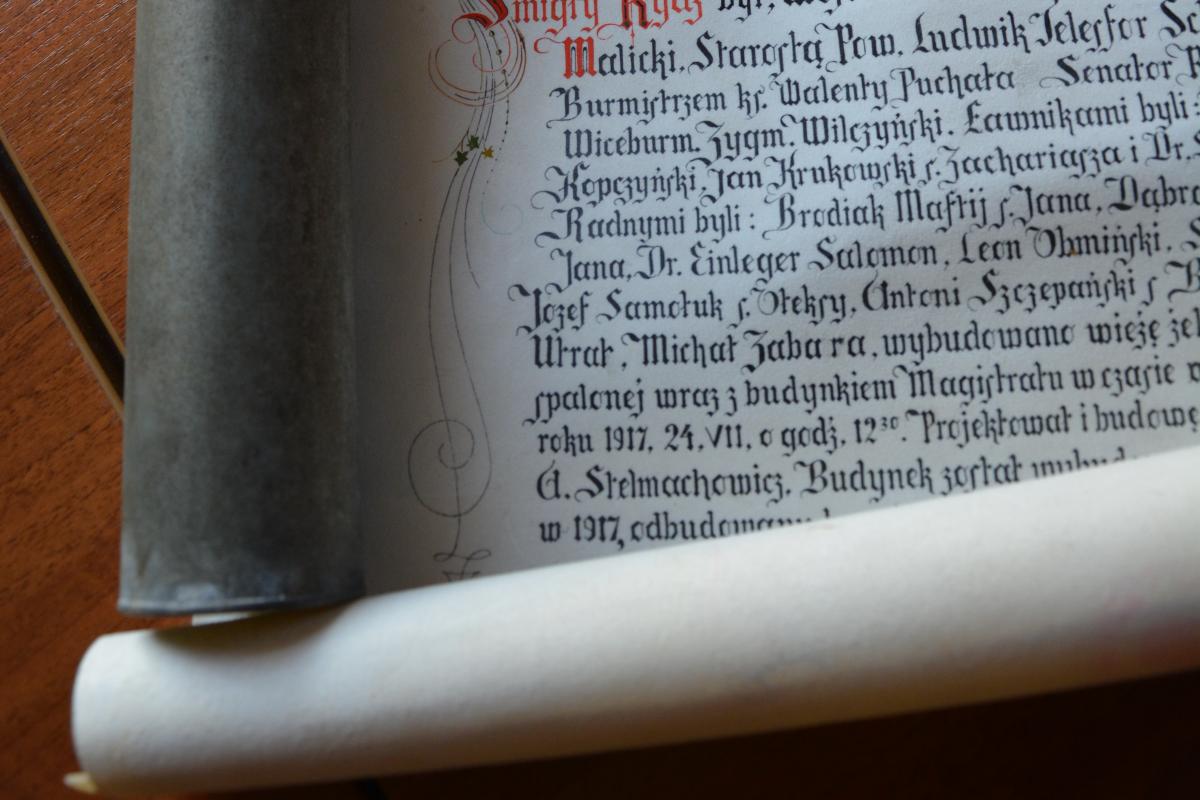 Śmigły Rydz był,
Malicki. Starostą Pow. Ludwik Telesfor
Burmistrzem ks. Walenty Puchała Senator
Wiceburm. Zygm. Wilczyński. Ławnikami byli:
Kopczyński, Jan Krukowski s. Zachariasza i Dr.
Radnymi byli: Brodiak Maftij s. Jana,
Jana, Dr. Einleger Salomon, Leon Obmiński.
Józef Samołuk s. Ołeksy, Antoni Szczepański s
Utrat, Michał Zabara, wybudowano wieżę
spalonej wraz z budynkiem Magistratu w czasie
roku 1917. 24. VII. o godz. 12³⁰. Projektował i budowę
A. Stelmachowicz. Budynek został
w 1917, odbudowany